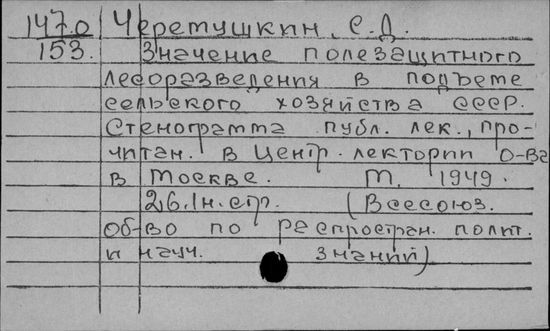 1470 Черемушкин, С.Д.
153. Значение полезащитного
лесоразведения в подъеме
сельского хозяйства СССР.
Стенограмма публ. лек., про-
читан. в Центр. лектории О-ва
в Москве. М. 1949.
26.1н. стр. (Всесоюз.
об-во по распростран. полит.
и науч. знаний)